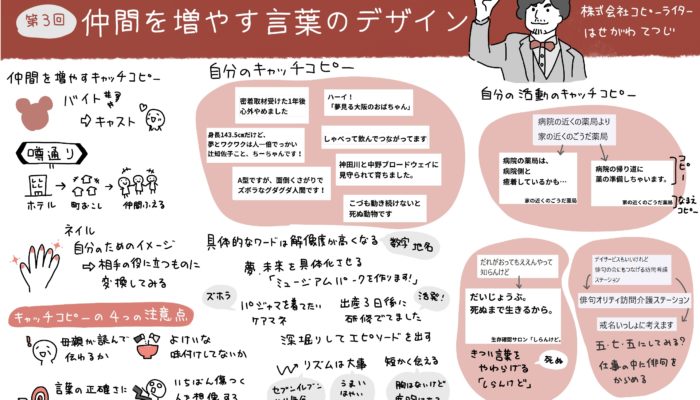 第3回
仲間を増やす言葉のデザイン
株式会社コピーライター
はせがわ てつじ
仲間を増やすキャッチコピー
バイト募集
⇨キャスト
噂通り
ホテル
町おこし
仲間ふえる
ネイル
自分のためのイメージ
⇨相手の役に立つものに
変換してみる
キャッチコピーの4つの注意点
母親が読んで
伝わるか
よけいな
味付けしてないか
言葉の正確さに
いちばん傷つく
人を想像する
自分のキャッチコピー
密着取材受けた1年後
心外やめました
ハーイ！
「夢見る大阪のおばちゃん」
身長143.5㎝だけど、
夢とワクワクは人一倍でっかい
辻知佐子こと、ちーちゃんです！
しゃべって飲んでつながってます
神田川と中野ブロードウェイに
見守られて育ちました。
A型ですが、面倒くさがりで
ズボラなグダグダ人間です！
こづも動き続けないと
死ぬ動物です
具体的なワードは解像度が高くなる
数字
地名
夢、未来を具体化させる
「ミュージアムパークを作ります!」
ズボラ
パジャマを着てたい
ケアマネ
出産3日後に
研修でてました
活発!
深掘りしてエピソードを出す
リズムは大事
短かく伝える
セブンイレブン
うまい
はやい
胸はないけど
自分の活動のキャッチコピー
病院の近くの薬局より
家の近くのごうだ薬局
病院の薬局は、
病院側と
癒着しているかも…
家の近くのごうだ薬局
病院の帰り道に
薬の準備しちゃいます。
家の近くのごうだ薬局
コピー
なまえ
コピー
だれがおってもええんやって
知らんけど
だいじょうぶ。
死ぬまで生きるから。
生存確認サロン「しらんけど」
きつい言葉を
やわらげる
「しらんけど」
死ぬ
デイサービスもいいけれど
俳句オリティ訪問介護ステーション
戒名いっしょに考えます
五・七・五にしてみる?
仕事の中に俳句を
からめる